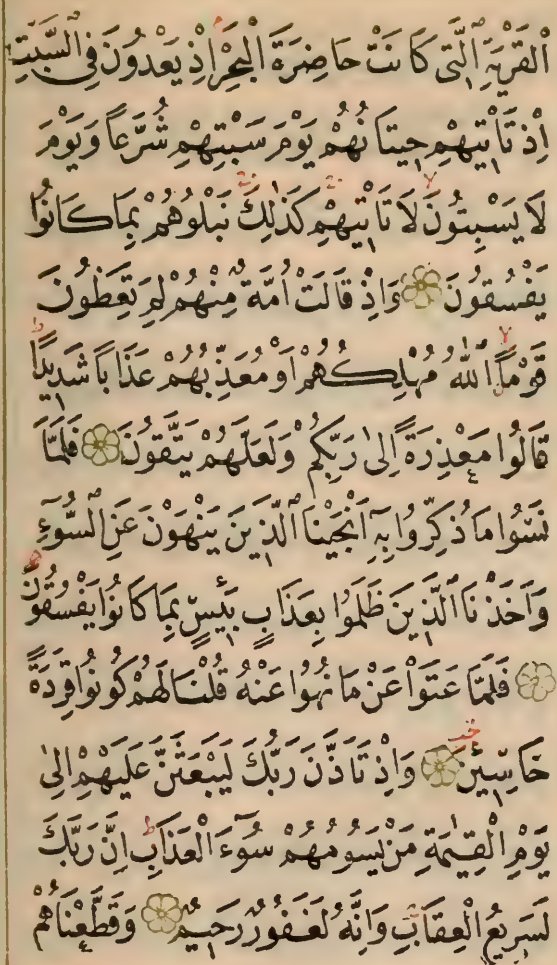 اَلْقَرْيَةِ الَّتٖي كَانَتْ حَاضِرَةَ الْبَحْرِ اِذْ يَعْدُونَ فِي السَّبْتِ
اِذْ تَاْتٖيهِمْ حٖيتَانُهُمْ يَوْمَ سَبْتِهِمْ شُرَّعاً وَيَوْمَ
لَا يَسْبِتُونَ لَا تَاْتٖيهِمْ كَذٰلِكَ نَبْلُوهُمْ بِمَا كَانُوا
يَفْسُقُونَ وَاِذْ قَالَتْ اُمَّةٌ مِنْهُمْ لِمَ تَعِظُونَ
قَوْماً اَللّٰهُ مُهْلِكُهُمْ اَوْ مُعَذِّبُهُمْ عَذَاباً شَدٖيداً
قَالُوا مَعْذِرَةً اِلٰى رَبِّكُمْ وَلَعَلَّهُمْ يَتَّقُونَ فَلَمَّا
نَسُوا مَا ذُكِّرُوا بِهٖ اَنْجَيْنَا الَّذٖينَ يَنْهَوْنَ عَنِ السُّوءِ
وَاَخَذْنَا الَّذٖينَ ظَلَمُوا بِعَذَابٍ بَئٖيسٍ بِمَا كَانُوا يَفْسُقُونَ
فَلَمَّا عَتَوْا عَنْ مَا نُهُوا عَنْهُ قُلْنَا لَهُمْ كُونُوا قِرَدَةً
خَاسِئٖينَ وَاِذْ تَاَذَّنَ رَبُّكَ لَيَبْعَثَنَّ عَلَيْهِمْ اِلٰى
يَوْمِ الْقِيٰمَةِ مَنْ يَسُومُهُمْ سُوءَ الْعَذَابِ اِنَّ رَبَّكَ
لَسَرٖيعُ الْعِقَابِ وَاِنَّهُ لَغَفُورٌ رَحٖيمٌ وَقَطَّعْنَاهُمْ